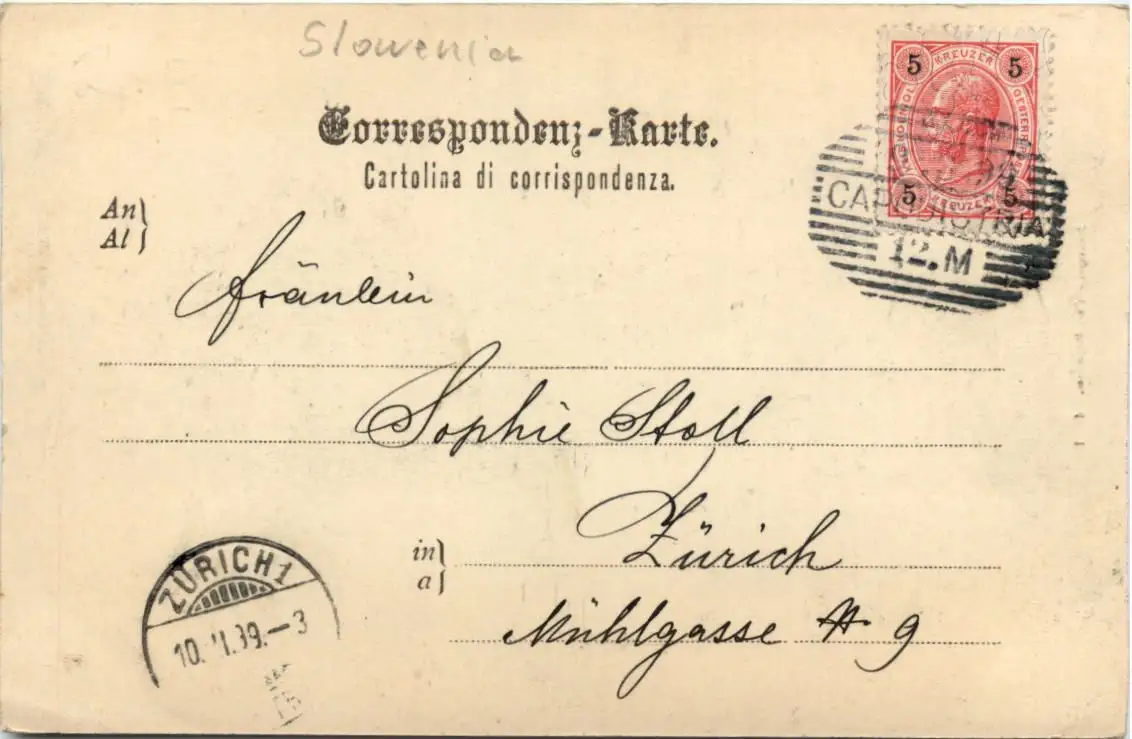 Slovenia
5 KREUZER 5
Correspondenz-Karte.
Cartolina di corrispondenza.
5 KREUZER 5
CAPODISTRIA
12.M
An
Al
Fräulein
Sophie Stoll
in
a
Zürich
Mühlgasse # 9
ZÜRICH 1
10. .99.-3